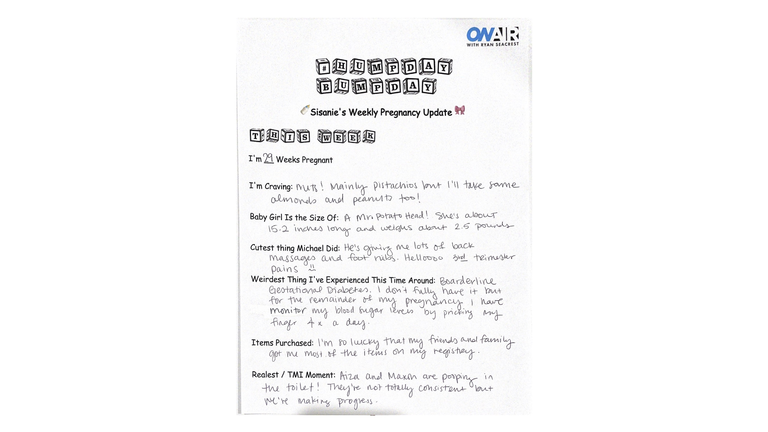 ON AIR
WITH RYAN SEACREST
#HUMPDAY
BUMPDAY
Sisanie's Weekly Pregnancy Update
THIS WEEK
I'm 29 Weeks Pregnant
I'm Craving: Nuts! Mainly pistachios but I'll take some
almonds and peanuts too!
Baby Girl Is the Size Of: A Mr. Potato Head! She's about
15.2 inches long and weighs about 2.5 pounds
Cutest thing Michael Did: He's giving me lots of back
massages and foot rubs. Helloooo 3rd trimester
pains
Weirdest Thing I've Experienced This Time Around: Boarderline
Gestational Diabetes. I don't fully have it but
for the remainder of my pregnancy I have
monitor my blood sugar levels by pricking my
finger 4x a day.
Items Purchased: I'm so lucky that my friends and family
got me most of the items on my registry.
Realest / TMI Moment: Aiza and Maxon are pooping in
the toilet! They're not totally consistent but
we're making progress.